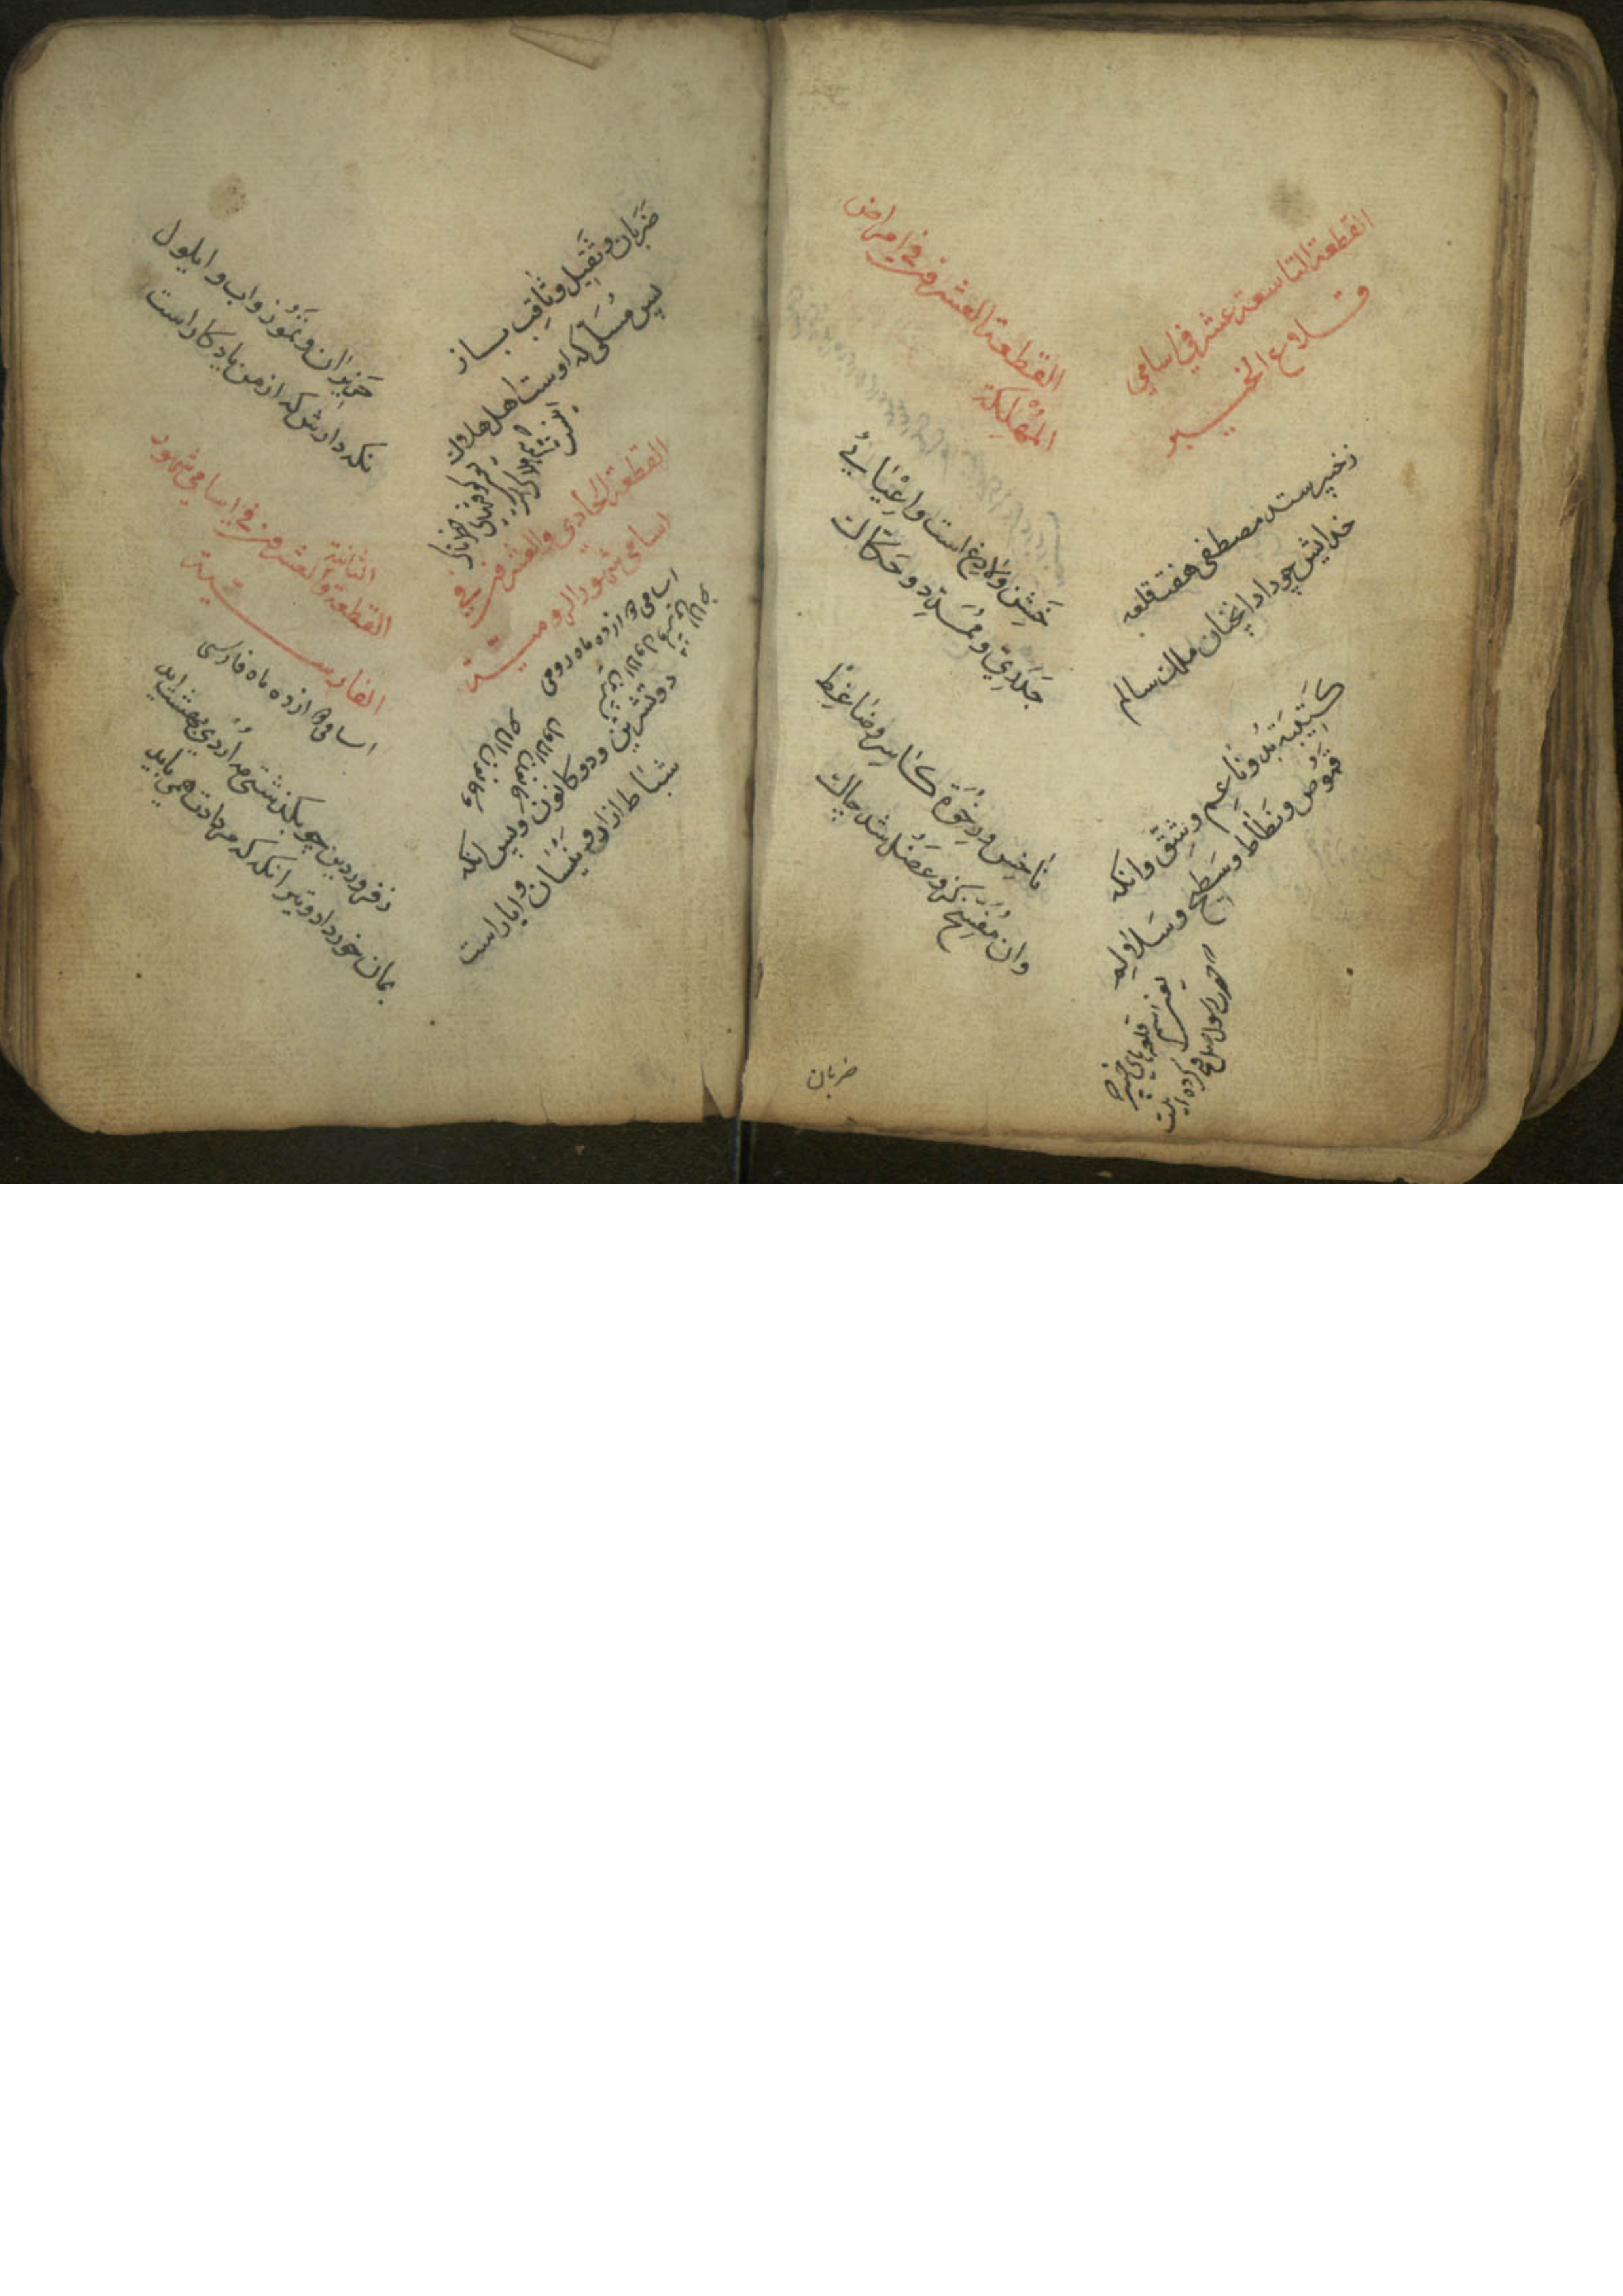 القطعة التاسعة عشر في اسامي
قلاع الخيبر
زخیبر ستد مصطفی هفت قلعه
خدایش چو داد انچنان ملك سالم
كَتِيبَه بُدُ وناعِم وشِقّ وانکه
قموص ونَطَاط وسَطِيح وسَلالِم
القطعة العشرون في امراض
المُهْلِكَة
خَشِن وَلاذِع است واِعْيَایی
خَدَرِيّ و مُمَدِّد و حَكّاك
نَاخِس ورِخْوَة كَاسِر وضَاغِط
وان مُفَسِّخ کزو عضل شد چاك
ضربان
ضَرَبَان وثَقِيل وثَاقِب باز
پس مُسَلّی که اوست اهل هلاك
القطعة الحادی والعشرون في
اسامی شهور الرومیة
اسامی دوازده ماه رومی
دو تشرین ودو کانون وپس انکه
شباط اذار و نیسان و ایار است
حَزِیرَان وتَمُوز واب وایلول
نکه دارش که از من یادکار است
القطعة الثانیة والعشرون في اسامی شهور
الفارسیة
اسامی دوازده ماه فارسی
زفروردین چو بکذشتی مه اردی بهشت اید
بمان خرداد وتیر انکه که مردادت همی باید